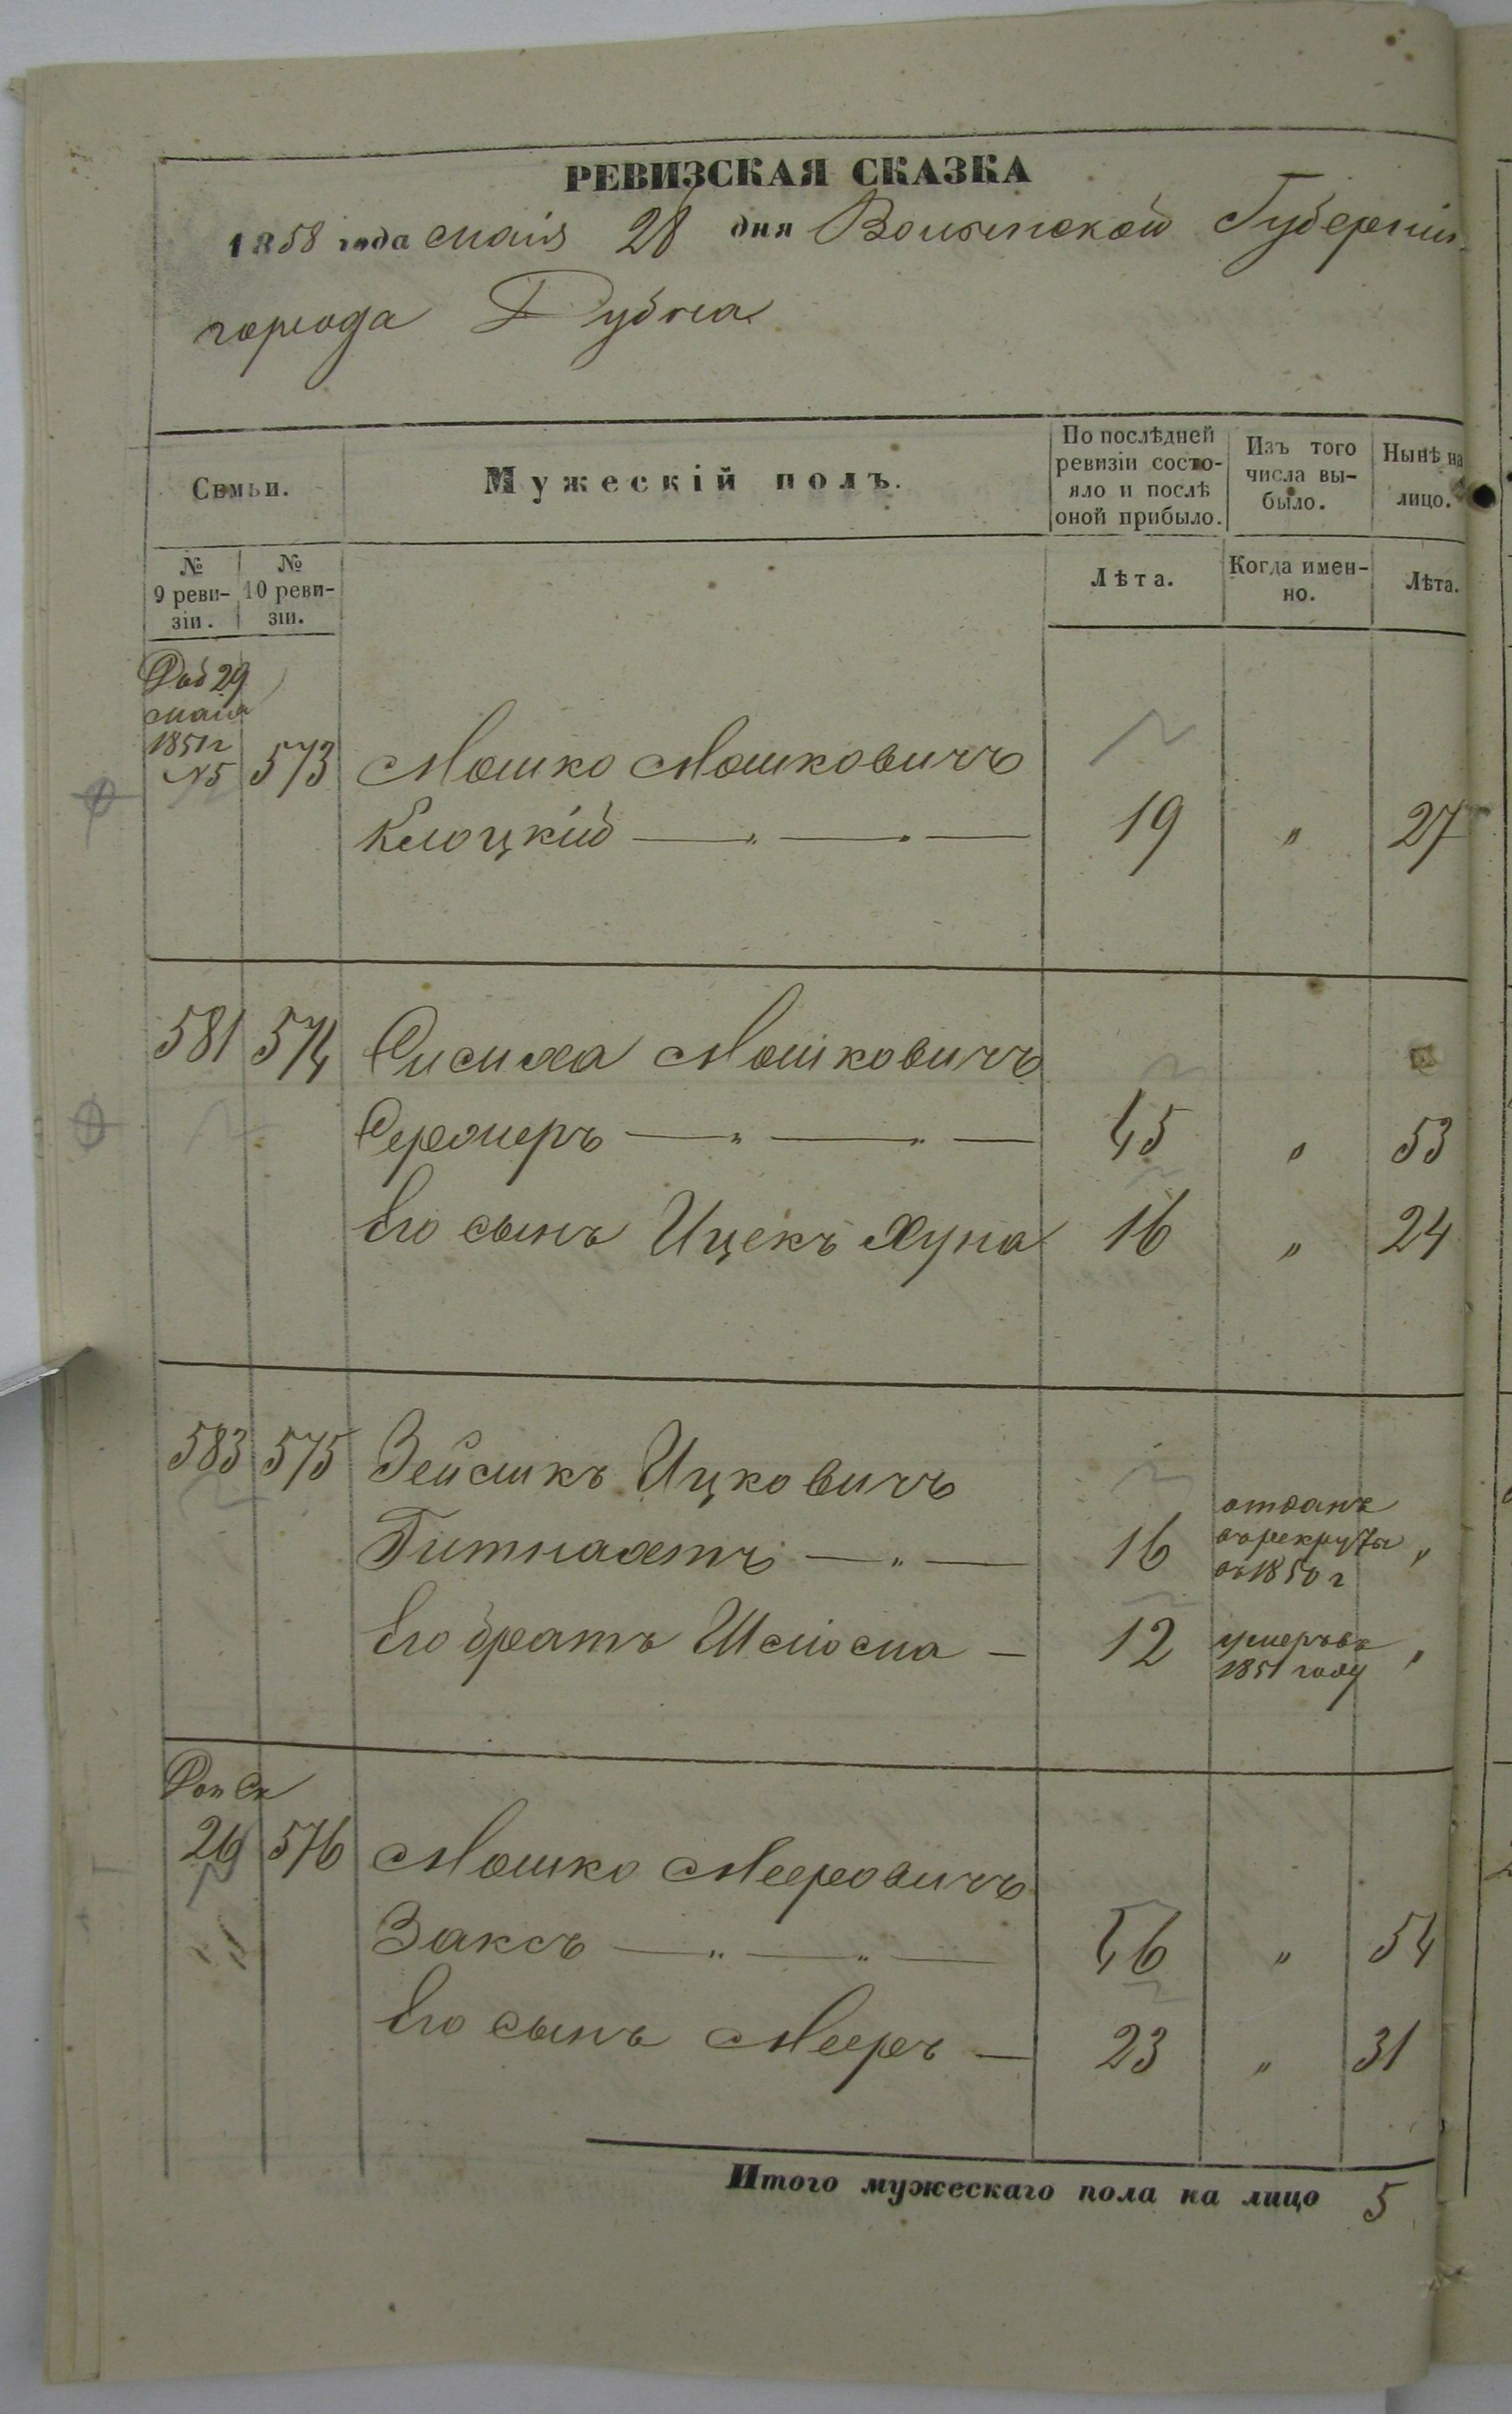 РЕВИЗСКАЯ СКАЗКА
1858 года маія 28 дня Волынской Губерніи
города Дубна
Семьи.
Мужескій полъ.
По послѣдней ревизіи состояло и послѣ оной прибыло.
Изъ того числа выбыло.
Нынѣ на лицо.
№ 9 ревизіи.
№ 10 ревизіи.
Лѣта.
Когда именно.
Лѣта.
29
маія
1851 г
№5 573 Мошко Мошковичъ
Клоцкій — „ — „ — 19 „ 27
581 574 Симха Мошковичъ
— „ — „ — 45 „ 53
Его сынъ Ицекъ Хуна 16 „ 24
583 575 Зейликъ Ицковичъ
— „ — 16 отданъ въ рекруты въ 1850 г „
Его братъ Шлiома — 12 умеръ въ 1851 году „
Доп Ск
26 576 Мошко Мееровичъ
Заксъ — „ — „ — 46 „ 54
Его сынъ Мееръ — 23 „ 31
Итого мужескаго пола на лицо 5